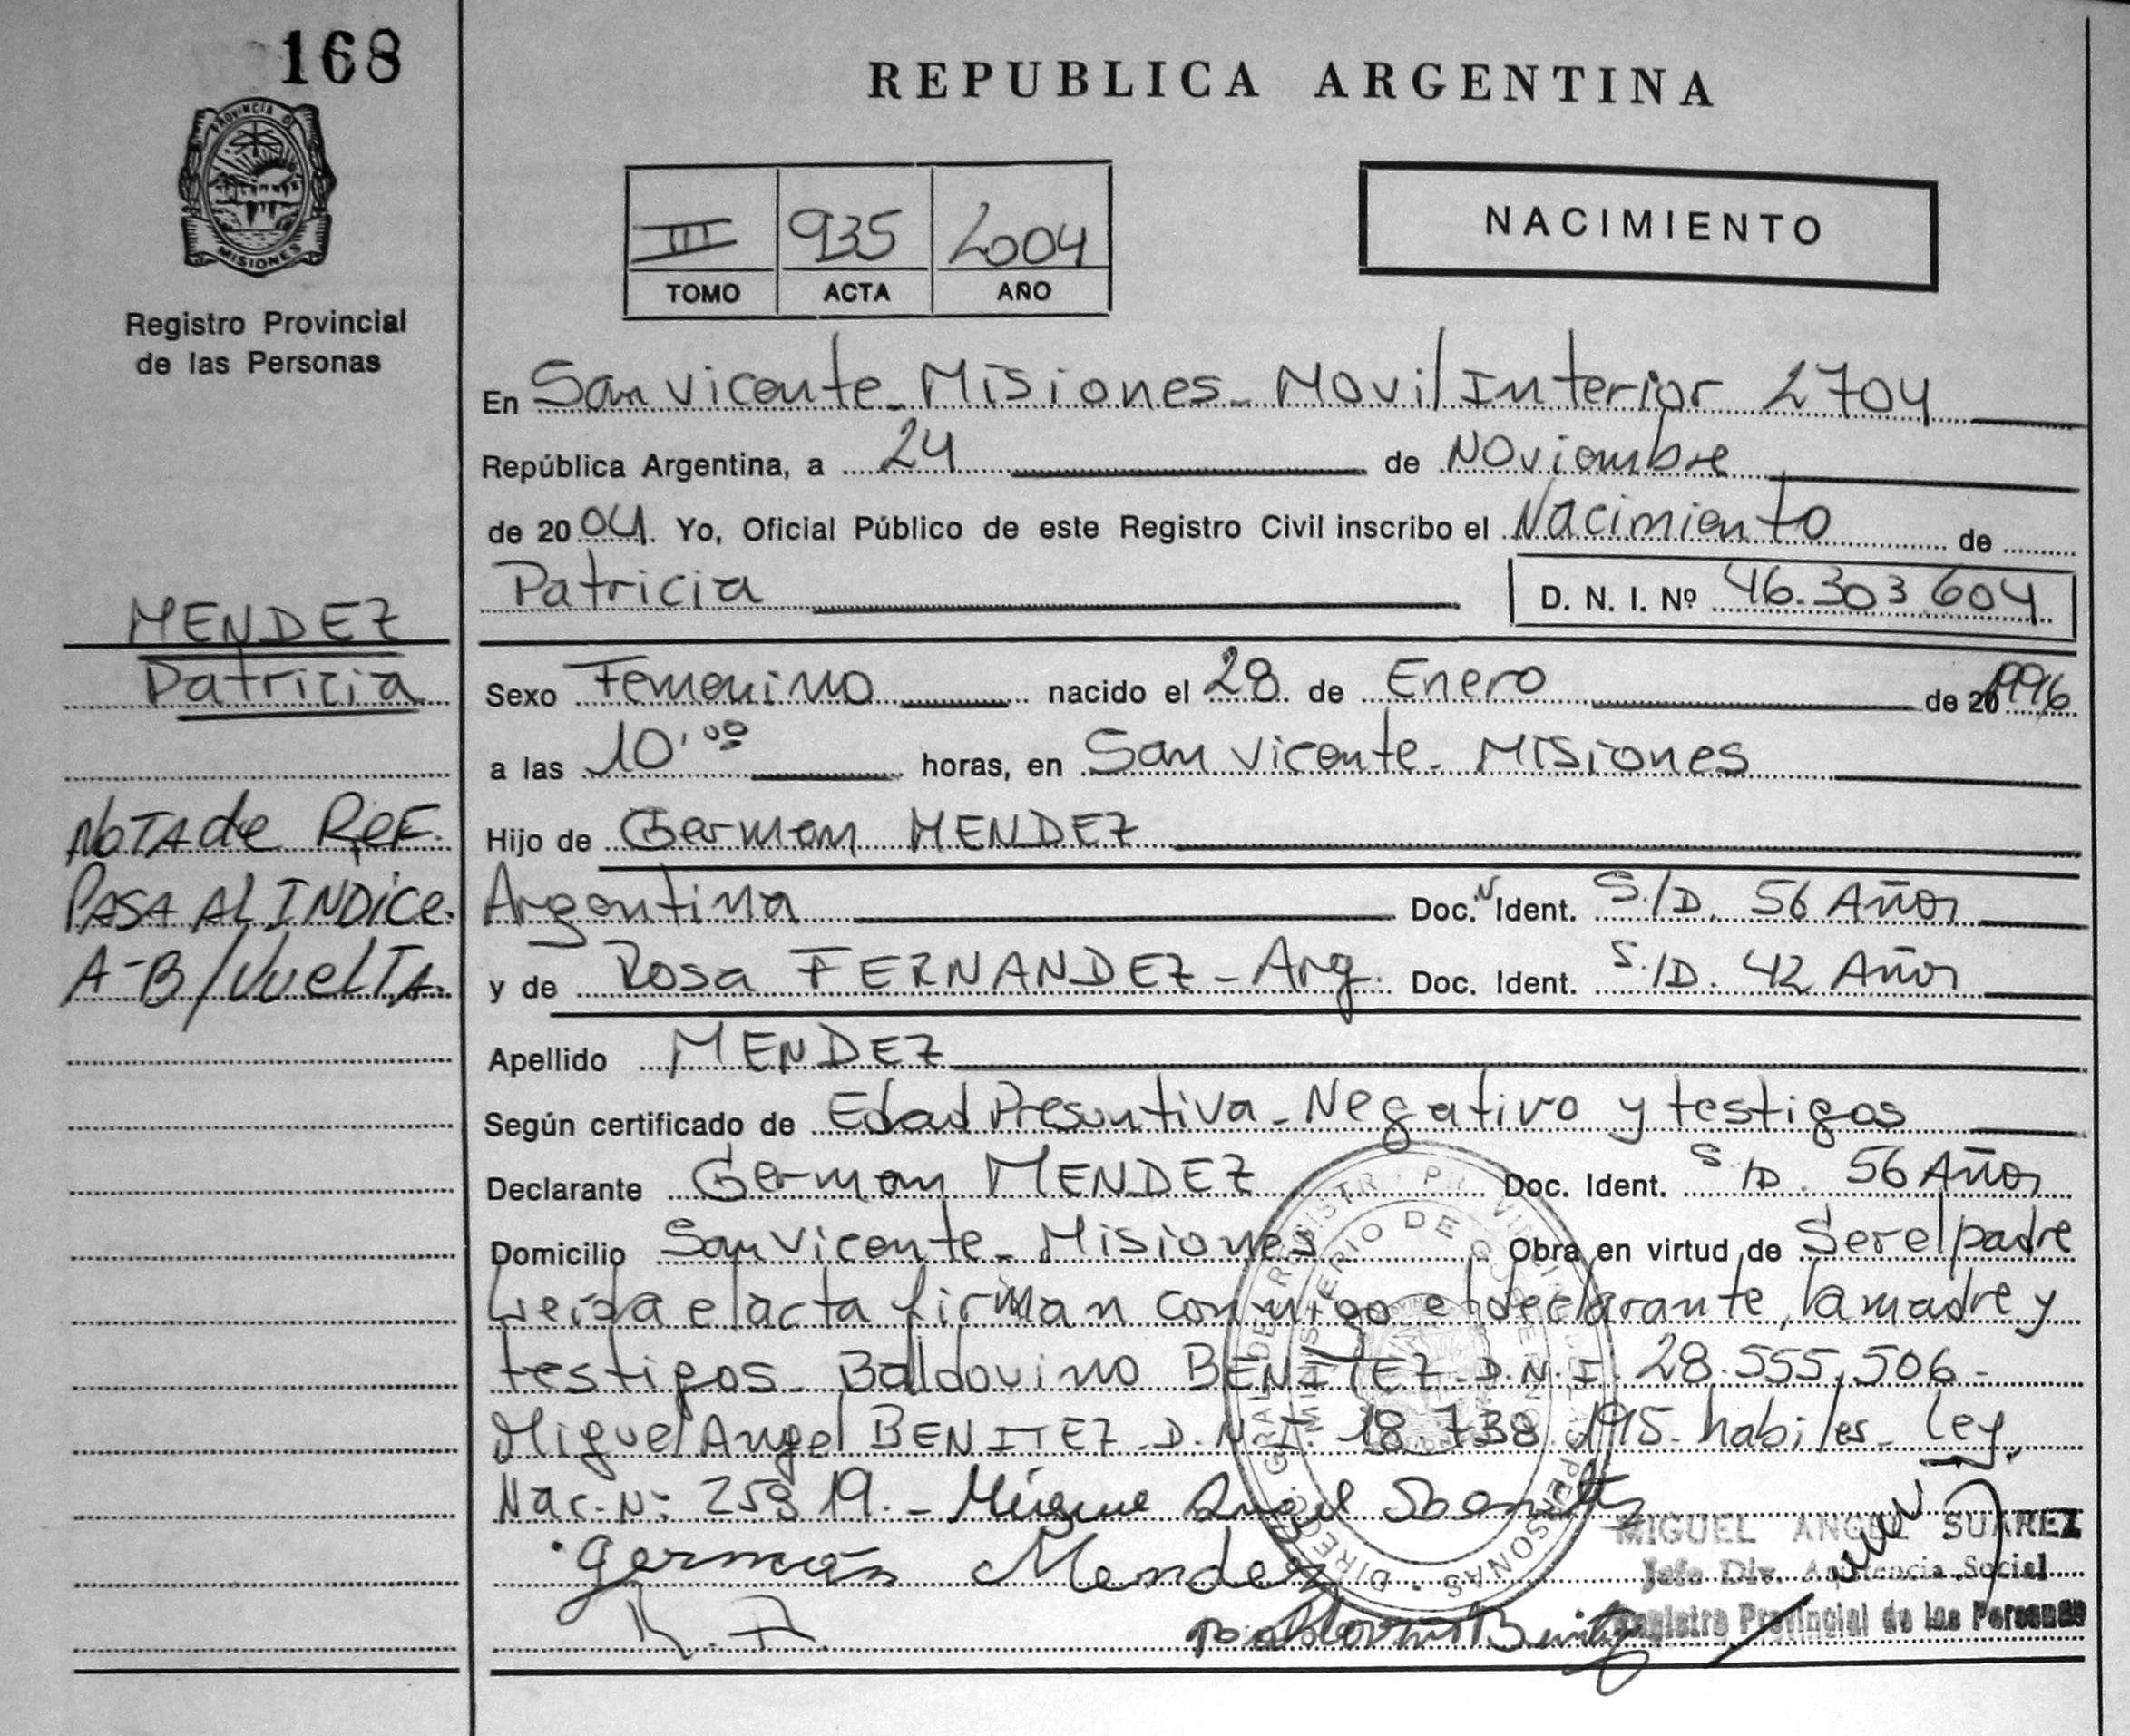 168
PROVINCIA D
MISIONES
Registro Provincial
de las Personas
MENDEZ
Patricia
NOTA de ReF.
PASA AL INDice.
A-B/VueLTA.
REPUBLICA ARGENTINA
III 935 2004
TOMO ACTA AÑO
NACIMIENTO
En San Vicente - Misiones - Movil Interior 2704
República Argentina, a 24 de Noviembre
de 2004. Yo, Oficial Público de este Registro Civil inscribo el Nacimiento de
Patricia D. N. I. Nº 46.303.604
Sexo Femenino nacido el 28 de Enero de 1996
a las 10,00 horas, en San Vicente - Misiones
Hijo de German MENDEZ
Argentina Doc. Ident. S./D. 56 Años
y de Rosa FERNANDEZ - Arg. Doc. Ident. S./D. 42 Años
Apellido MENDEZ
Según certificado de Edad Presuntiva - Negativo y testigos
Declarante German MENDEZ Doc. Ident. S/D. 56 Años
Domicilio San Vicente - Misiones Obra en virtud de Ser el padre
Leida el acta firman conmigo el declarante, la madre y
testigos - Baldovino BENITEZ - D.N.I. 28.555.506 -
Miguel Angel BENITEZ - D.N.I. 18.738.195 - habiles - Ley.
Nac. Nº 25819. - Miguel Angel
germán Mendez
R. F.
MIGUEL ANGEL SUAREZ
Jefe Div. Asistencia Social
Registro Provincial de las Personas